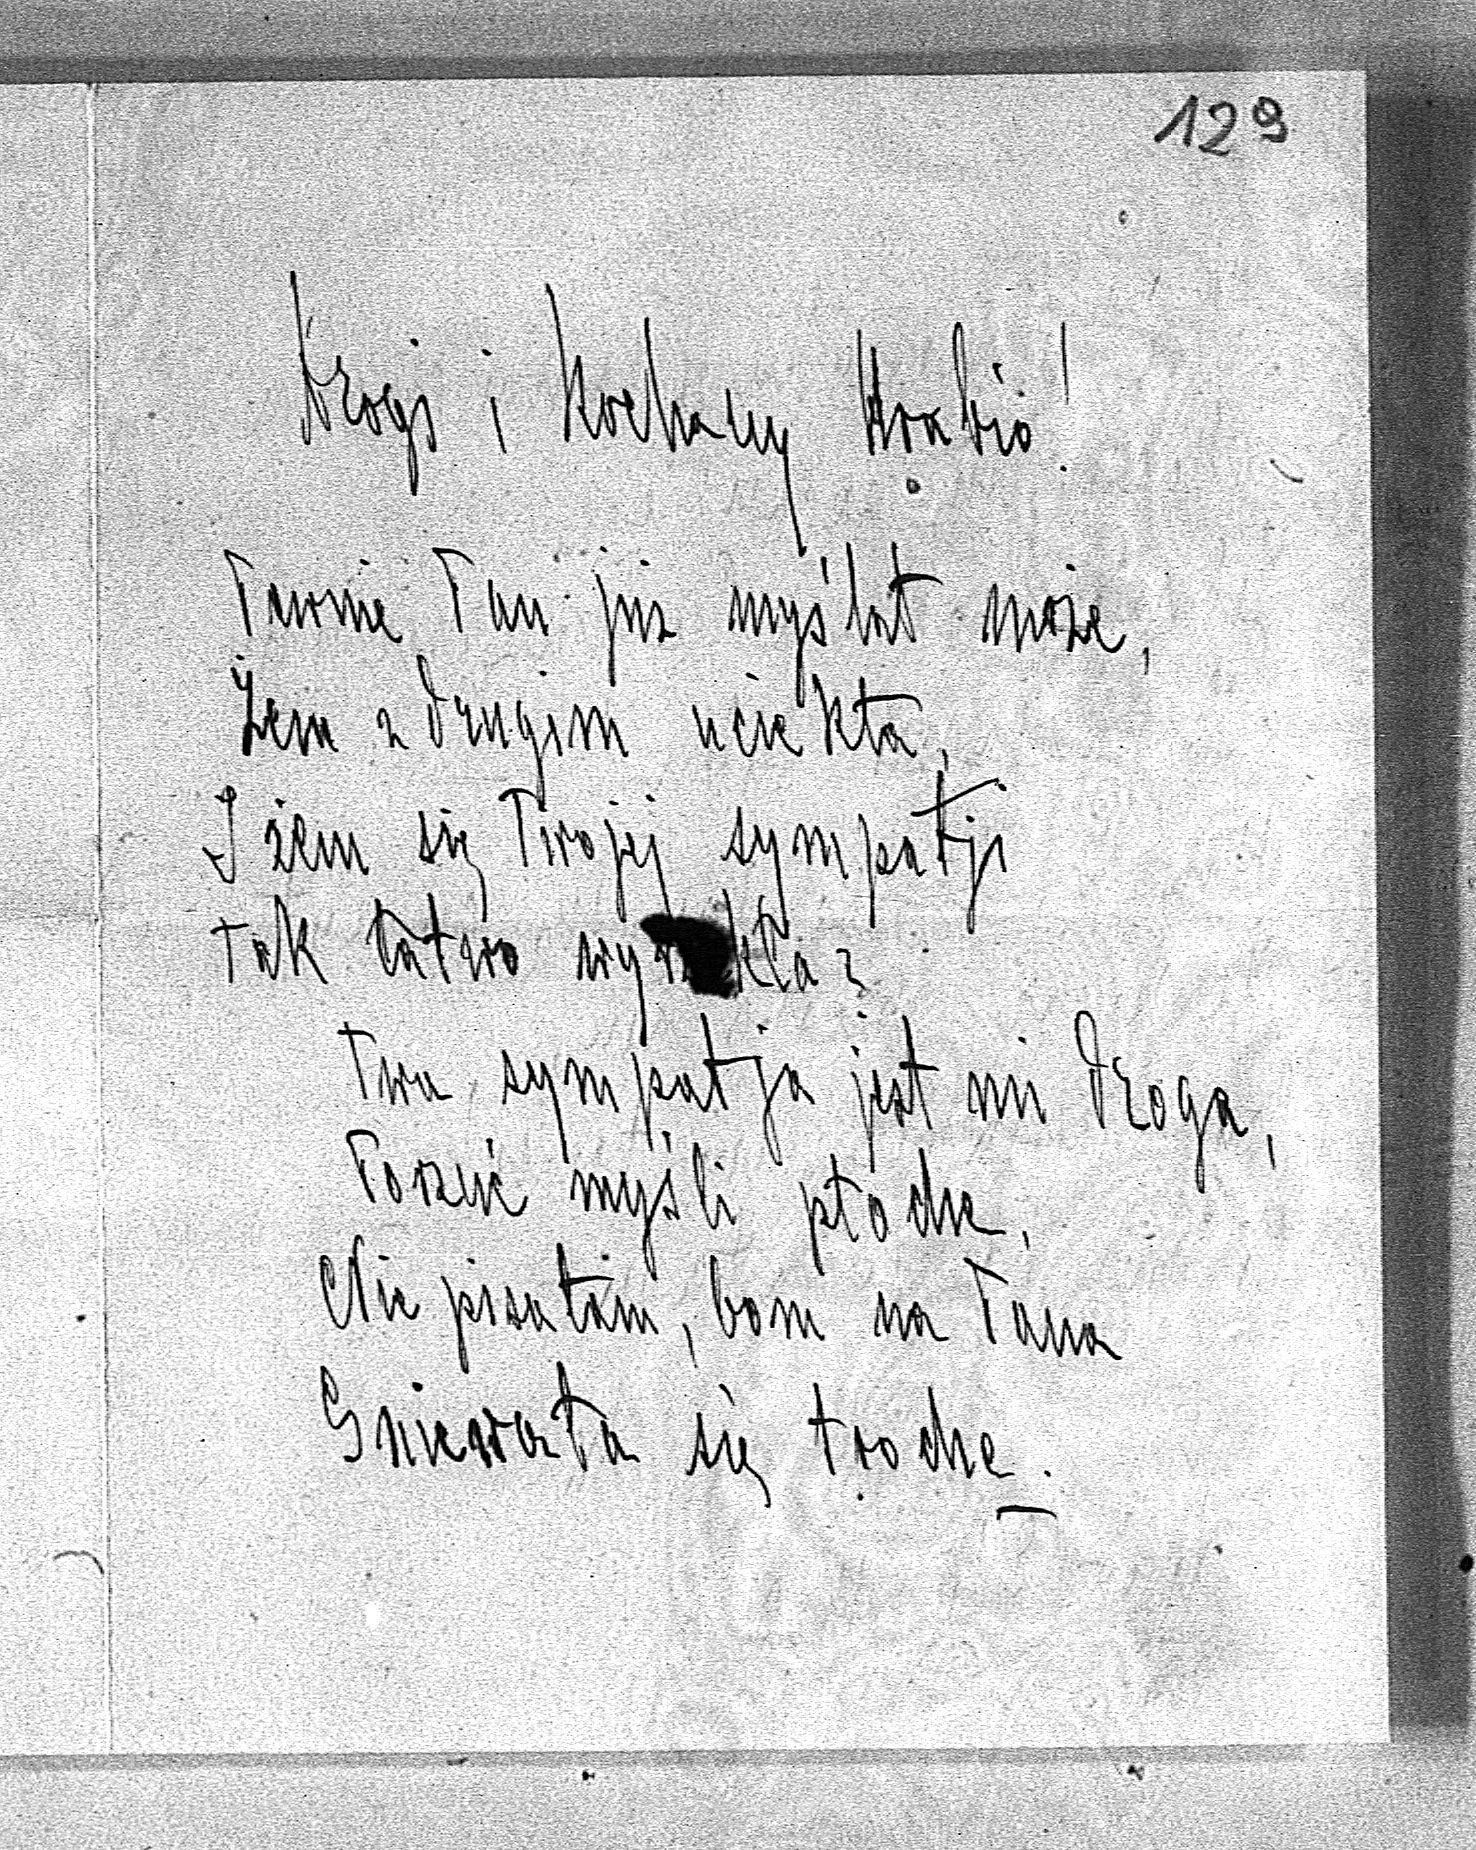 129
Drogi i Kochany Hrabio!
Pewnie Pan już myślał może,
Żem z drugim uciekła,
I żem się Twojej sympatji
tak łatwo wyrzekła?
Twa sympatja jest mi droga,
Porzuć myśli płoche,
Nie pisałam, bom na Pana
Gniewała się troche.